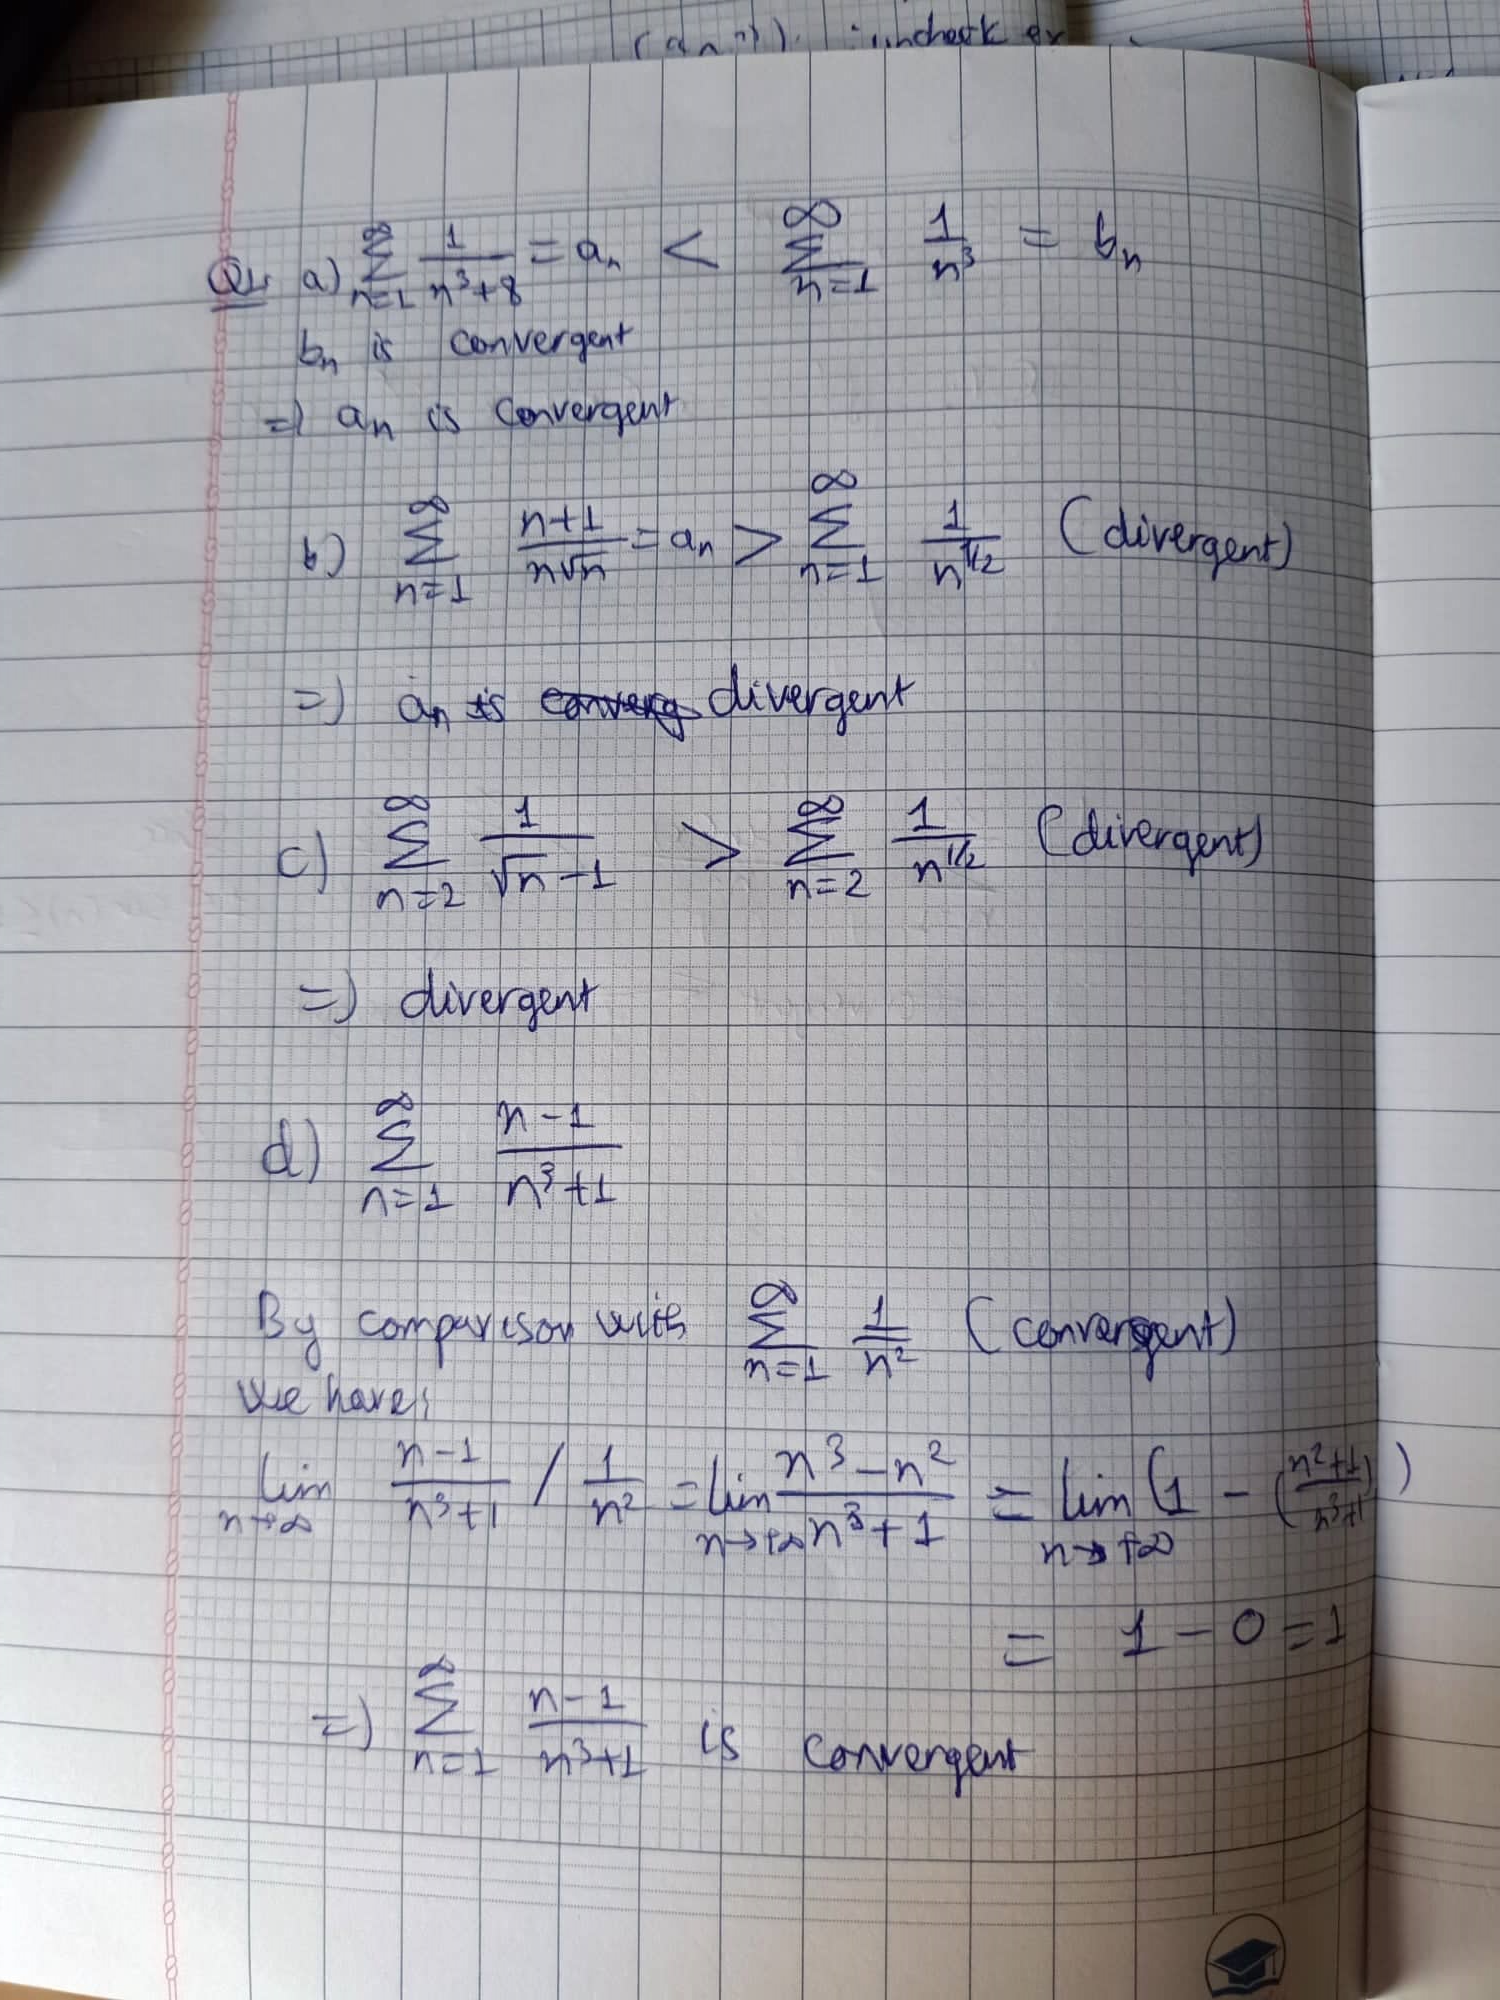 (an
uncheck ex
Q1, a) ∑_{n=1}^{∞} 1/(n³+8) = aₙ < ∑_{n=1}^{∞} 1/n³ = bₙ
bₙ is convergent
=) aₙ is convergent
b) ∑_{n=1}^{∞} (n+1)/(n√n) = aₙ > ∑_{n=1}^{∞} 1/n^{1/2} (divergent)
=) aₙ is converg divergent
c) ∑_{n=2}^{∞} 1/(√n-1) > ∑_{n=2}^{∞} 1/n^{1/2} (divergent)
=) divergent
d) ∑_{n=1}^{∞} (n-1)/(n³+1)
By comparison with ∑_{n=1}^{∞} 1/n² (convergent)
we have:
lim_{n→∞} (n-1)/(n³+1) / 1/n² = lim_{n→+∞} (n³-n²)/(n³+1) = lim_{n→+∞} (1 - ((n²+1)/(n³+1)))
= 1 - 0 = 1
=) ∑_{n=1}^{∞} (n-1)/(n³+1) is convergent